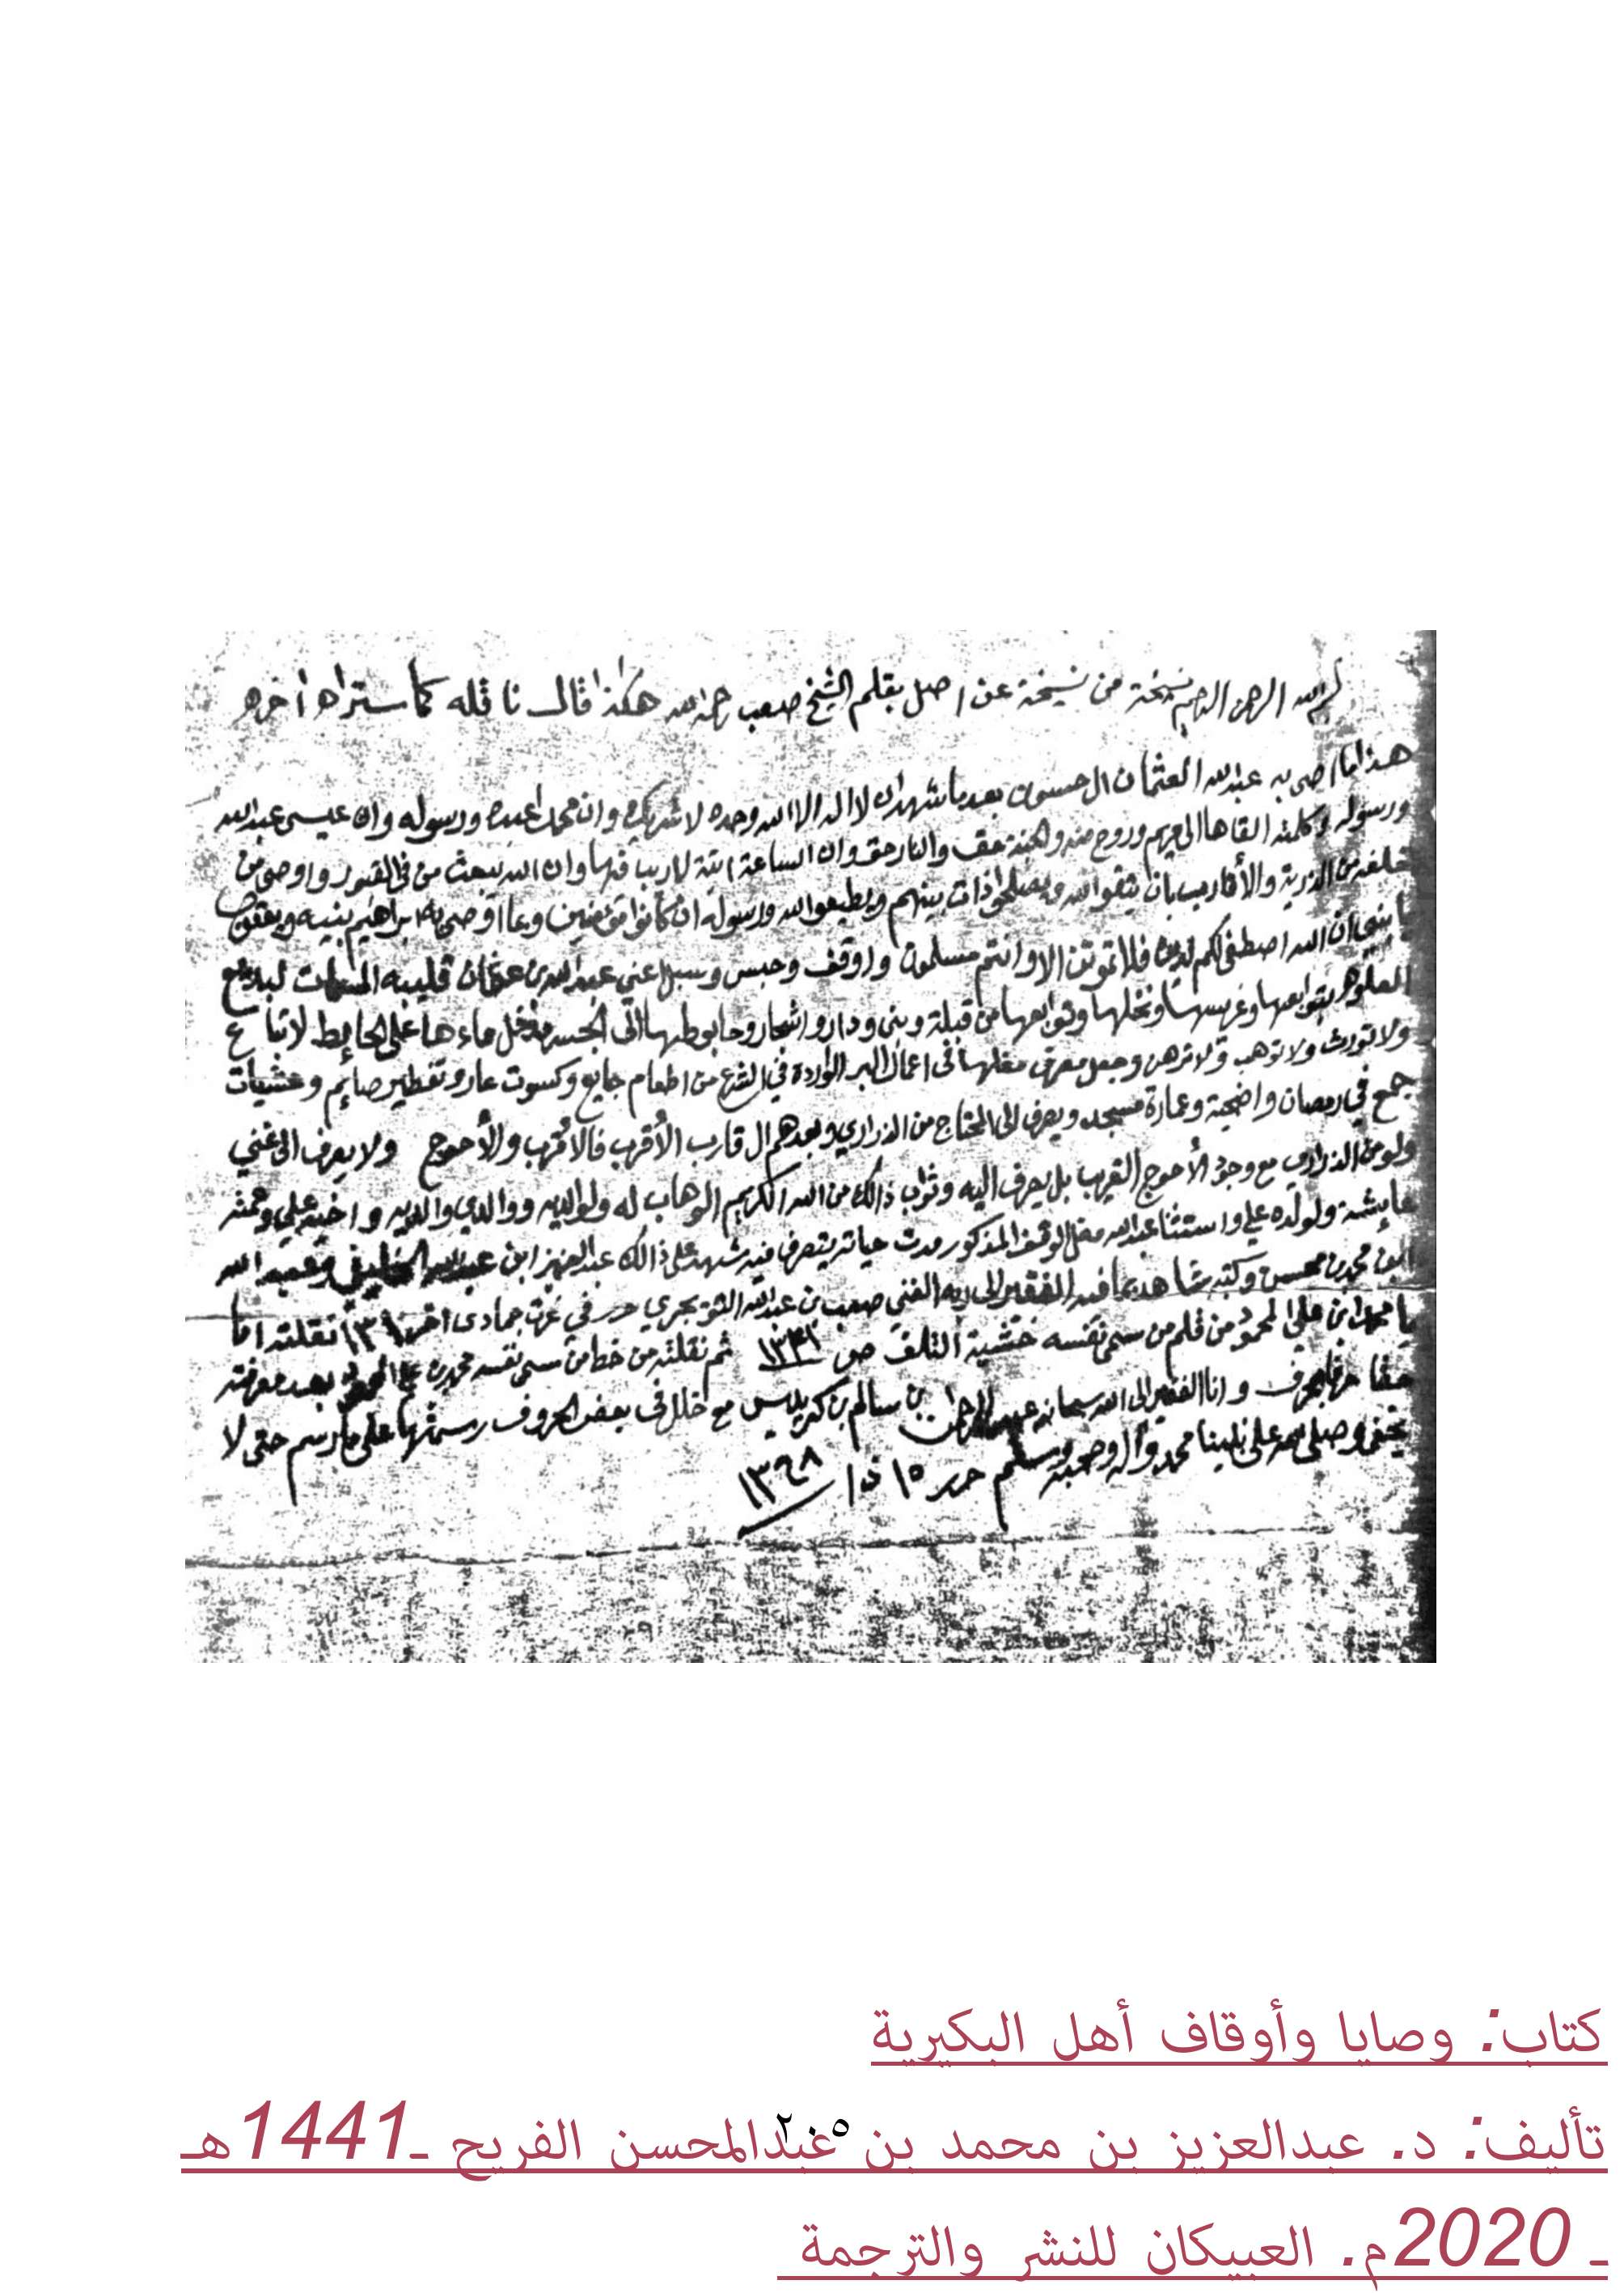 بسم الله الرحمن الرحيم نسخة من نسيخة عن اصل بقلم الشيخ صعب رحمه الله هكذا قال ناقله كما ستراه اخره
هذا ما اوصى به عبدالله العثمان ال حسون بعد ما شهد ان لا اله الا الله وحده لا شريك له وان محمدا عبده ورسوله وان عيسى عبدالله
ورسوله وكلمته القاها الى مريم وروح منه والجنة حق والنار حق وان الساعة اتية لا ريب فيها وان الله يبعث من في القبور واوصى من
خلفه من الذرية والأقارب بان يتقو الله ويصلحو ذات بينهم ويطيعوا الله ورسوله ان كانوا مؤمنين وبما اوصى به ابراهيم بنيه ويعقوب
يا بني ان الله اصطفى لكم الدين فلا تموتن الا وانتم مسلمون واوقف وحبس وسبل عني عبدالله بن عثمان قليبه المسمات لبديع
المعلومه بتوابعها وغريسها ونخلها وتوابعها من قبلة وبني ودار واشجار وحابوطها الى الجسر مدخل ماءها على الحايط لا تباع
ولا تورث ولا توهب ولا ترهن وجعل مصرف مغلها في اعمال البر الواردة في الشرع من اطعام جايع وكسوت عار وتفطير صايم وعشيات
جمع في رمضان واضحية وعمارة مسجد ويصرف الى المحتاج من الذراري وبعدهم ال قارب الأقرب فالأقرب والأحوج ولا يصرف الى غني
ولو من الذراري مع وجود الأحوج القريب بل يصرف اليه وثواب ذالك من الله الكريم الوهاب له ولوالديه ووالدي والديه واخيه علي وعمته
عايشة ولولده علي واستثنا عبدالله مغل الوقف المذكور مدت حياته يتصرف فيه شهد على ذالك عبدالعزيز ابن عبدالله الخليفي وعبدالله
محمد بن محسن وكتبه شاهد بما فيه الفقير الى ربه الغني صعب بن عبدالله التويجري حرر في غرت جمادى اخر نقلته
يا محمد ابن علي المحمود من قلم من سمى نفسه خشية التلف ص ١٣٤١ ثم نقلته من خط من سمى نفسه محمد بن علي المحمود بعد معرفته
حقا حرفا بحرف وانا الفقير الى الله سبحانه عبدالرحمن بن سالم بن كريديس مع اخلال في بعض الحروف رسمتها على ما رسم حتى لا
يخفى وصلى الله على نبينا محمد وآله وصحبه وسلم حرر ١٥ ذا ١٣٦٨
كتاب: وصايا وأوقاف أهل البكيرية
تأليف: د. عبدالعزيز بن محمد بن عبدالمحسن الفريح ـ1441هـ
٢٠٥
ـ 2020م. العبيكان للنشر والترجمة